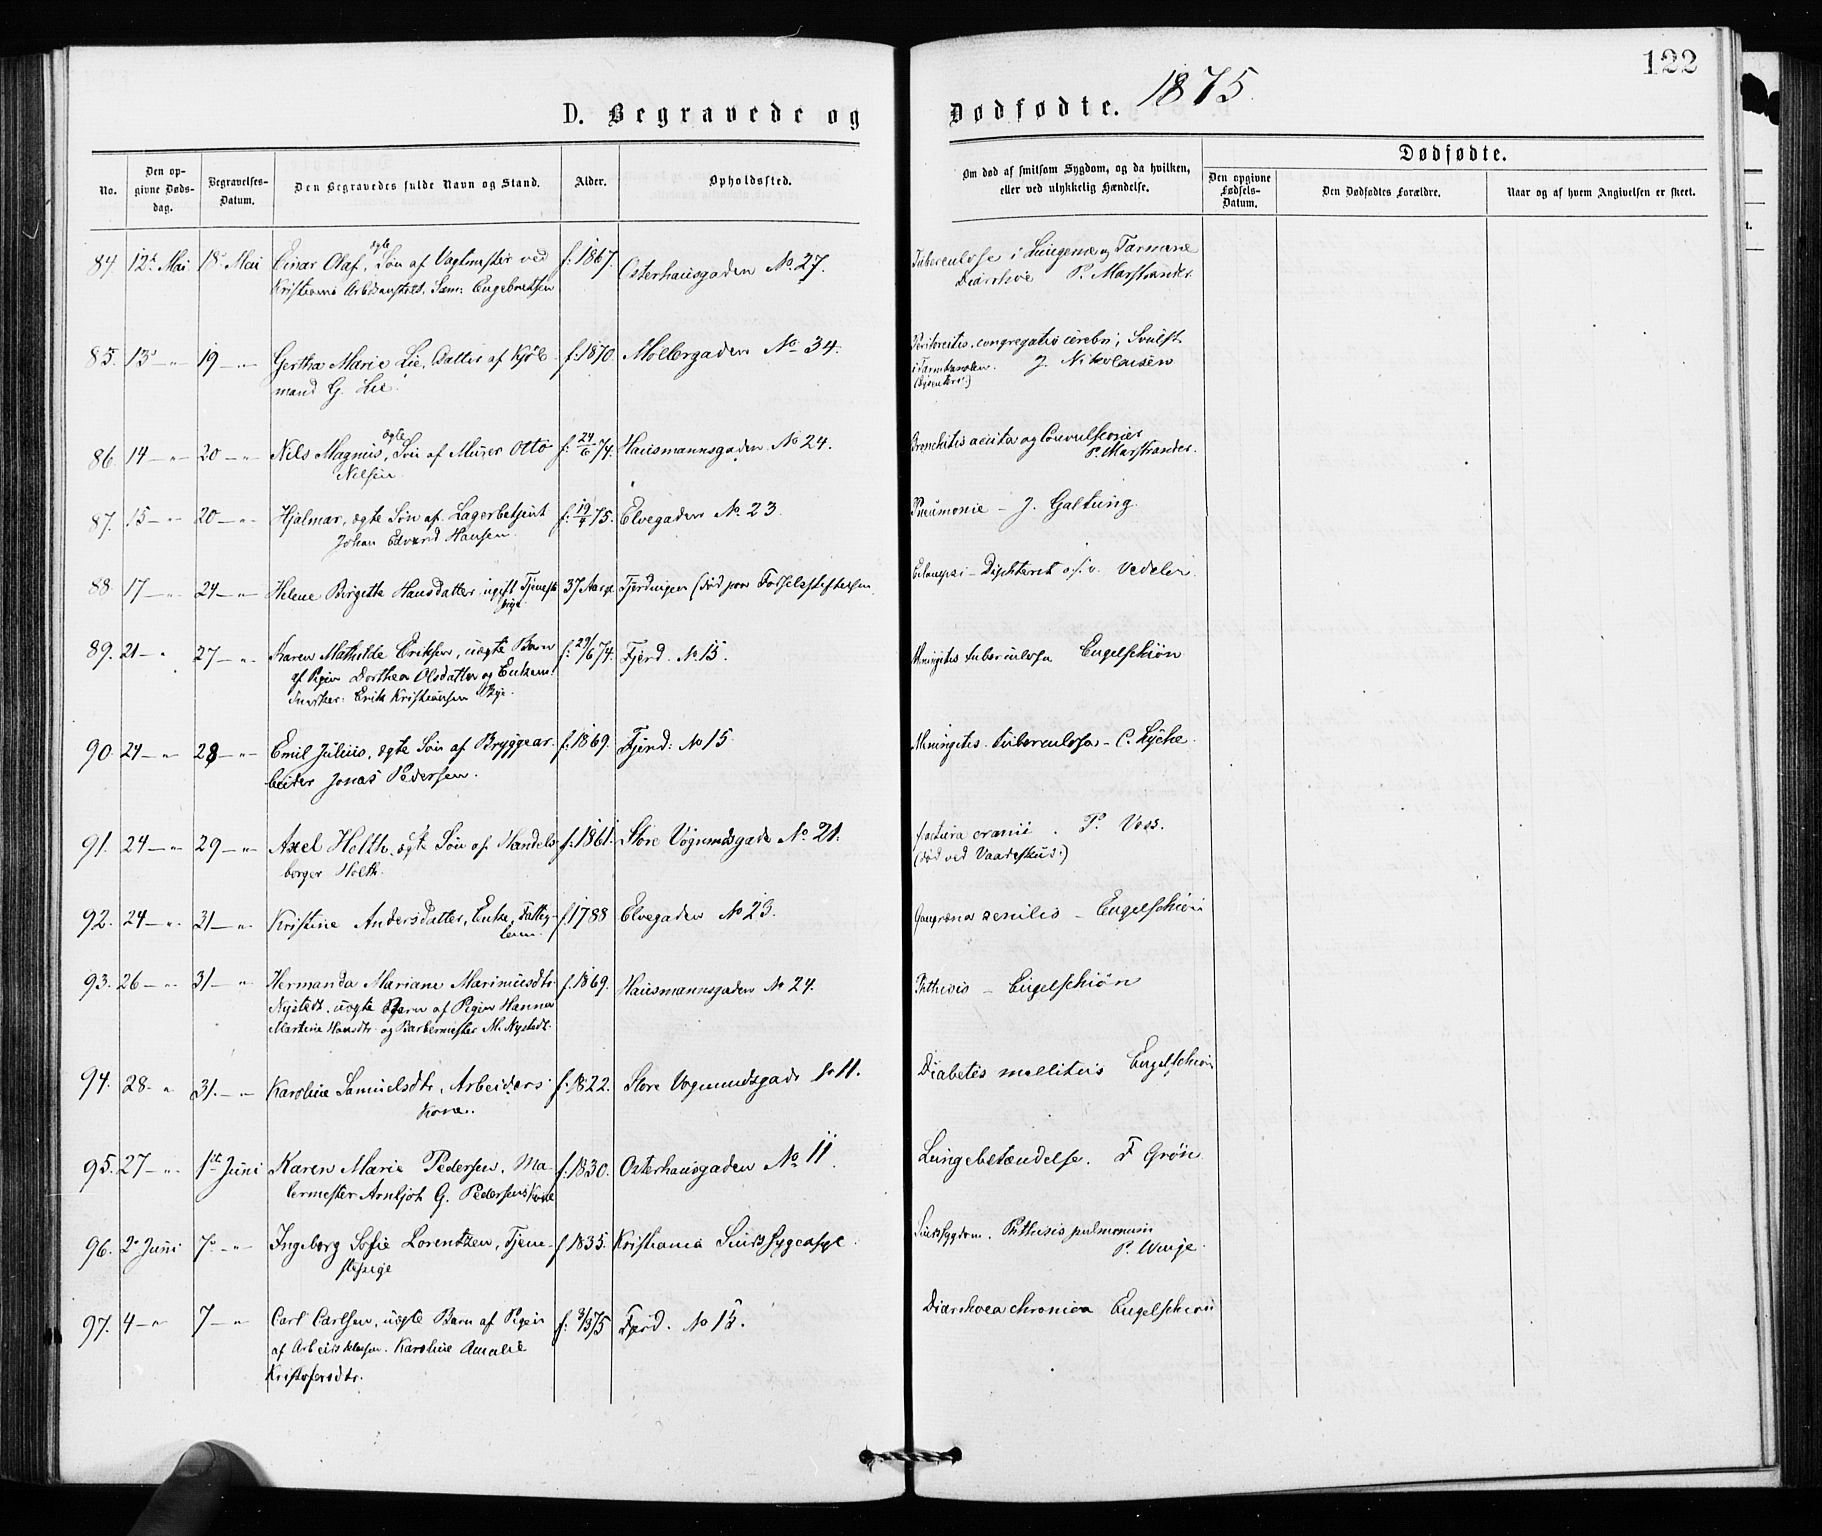 122
D. Begravede og Dødfødte. 1875.
No.
Den opgivne Dødsdag.
Begravelses-Datum.
Den Begravedes fulde Navn og Stand.
Alder.
Opholdssted.
Om død af smitsom Sygdom, og da hvilken, eller ved ulykkelig Hændelse.
Dødfødte.
Den opgivne Fødsels-Datum.
Den Dødfødtes Forældre.
Naar og af hvem Angivelsen er skeet.
84 12te Mai 18de Mai Einar Olaf, ægte Søn af Vagtmester ved f. 1867. Osterhausgaden No. 27. Tuberculose i Lungerne og Tarmene
Kristiania Arbeidsanstalt, Sam: Engebretsen Diarrhoe P. Marstrander.
85. 13 — 19 — Gertha Marie Lie, Datter af Kjøb- f. 1870. Møllergaden No 34. congregatis cerebri; Svulst
mand G. Lie. i Tarmkanalen. J. Nikolaisen
86. 14 — 20 — Nils Magnus, ægte Søn af Murer Otto f. 24/6 74. Hausmannsgaden No 24. Bronchitis acuta og Convulsioner
Nilsen P. Marstrander.
87. 15 — 20 — Hjalmar, ægte Søn af Lagerbetjent f. 19/4 75. Elvegaden No. 23 Pneumonie — J. Galtung.
Johan Edvard Hansen.
88. 17 — 24 — Helene Birgitte Hansdatter ugift Tjeneste 37 Aar gl Fjerdingen (død paa Fødselsstiftelsen Eclampsi — Diphterit o.s.v. Vedeler.
pige
89. 21 — 27 — Karen Mathilde Eriksen, uægte Barn f. 29/6 74. Fjerd. No 15. Meningitis tuberculosa Engelschiøn
af Pigen Dorthea Olsdatter og Enkem.
Erik Kristiansen Bye.
90 24 — 28 — Emil Julius, ægte Søn af Bryggear- f. 1869. Fjerd: No 15 Meningitis tuberculosa — C. Lyche.
beider Jonas Pedersen.
91. 24 — 29 — Axel Holth, ægte Søn af Handels- f. 1861. Store Vognmdsgade No 21. fractura cranii. P. Voss.
borger Holth. (død ved Vaadeskud.)
92. 24 — 31 — Kristine Andersdatter, Enke, Fattig- f 1788 Elvegaden No 23. Gangræna senilis — Engelschiøn
lem.
93. 26 — 31 — Hermanda Mariane Marimusdtr f. 1869. Hausmannsgaden No 24. Phthisis — Engelschiøn
Nystedt, uægte Barn af Pigen Hanna
Martine Hansdtr og Barbermester M. Nystedt.
94. 28 — 31. — Karoline Samuelsdtr, Arbeiders f. 1822. Store Vognmandsgade 11. Diabetes mellitus Engelschiøn
Kone.
95. 27 — 1ste Juni Karen Marie Pedersen, Ma- f. 1830. Osterhausgaden No 11. Lungebetændelse. F Grøn.
lermester Arnljot G. Pedersens Kone
96. 2de Juni 7de — Ingeborg Sofie Lorentzen, Tjene- f 1835. Kristiania Sindssygeasyl Sindssygdom. Phthisis pulmonum
stepige P. Winge.
97. 4 — 7 — Carl Carlsen, uægte Barn af Pigen f. 3/3 75 Fjerd. No 15. Diarrhoea chronica Engelschiøn
af Arbeidsklassen. Karoline Amalie
Kristofersdtr.